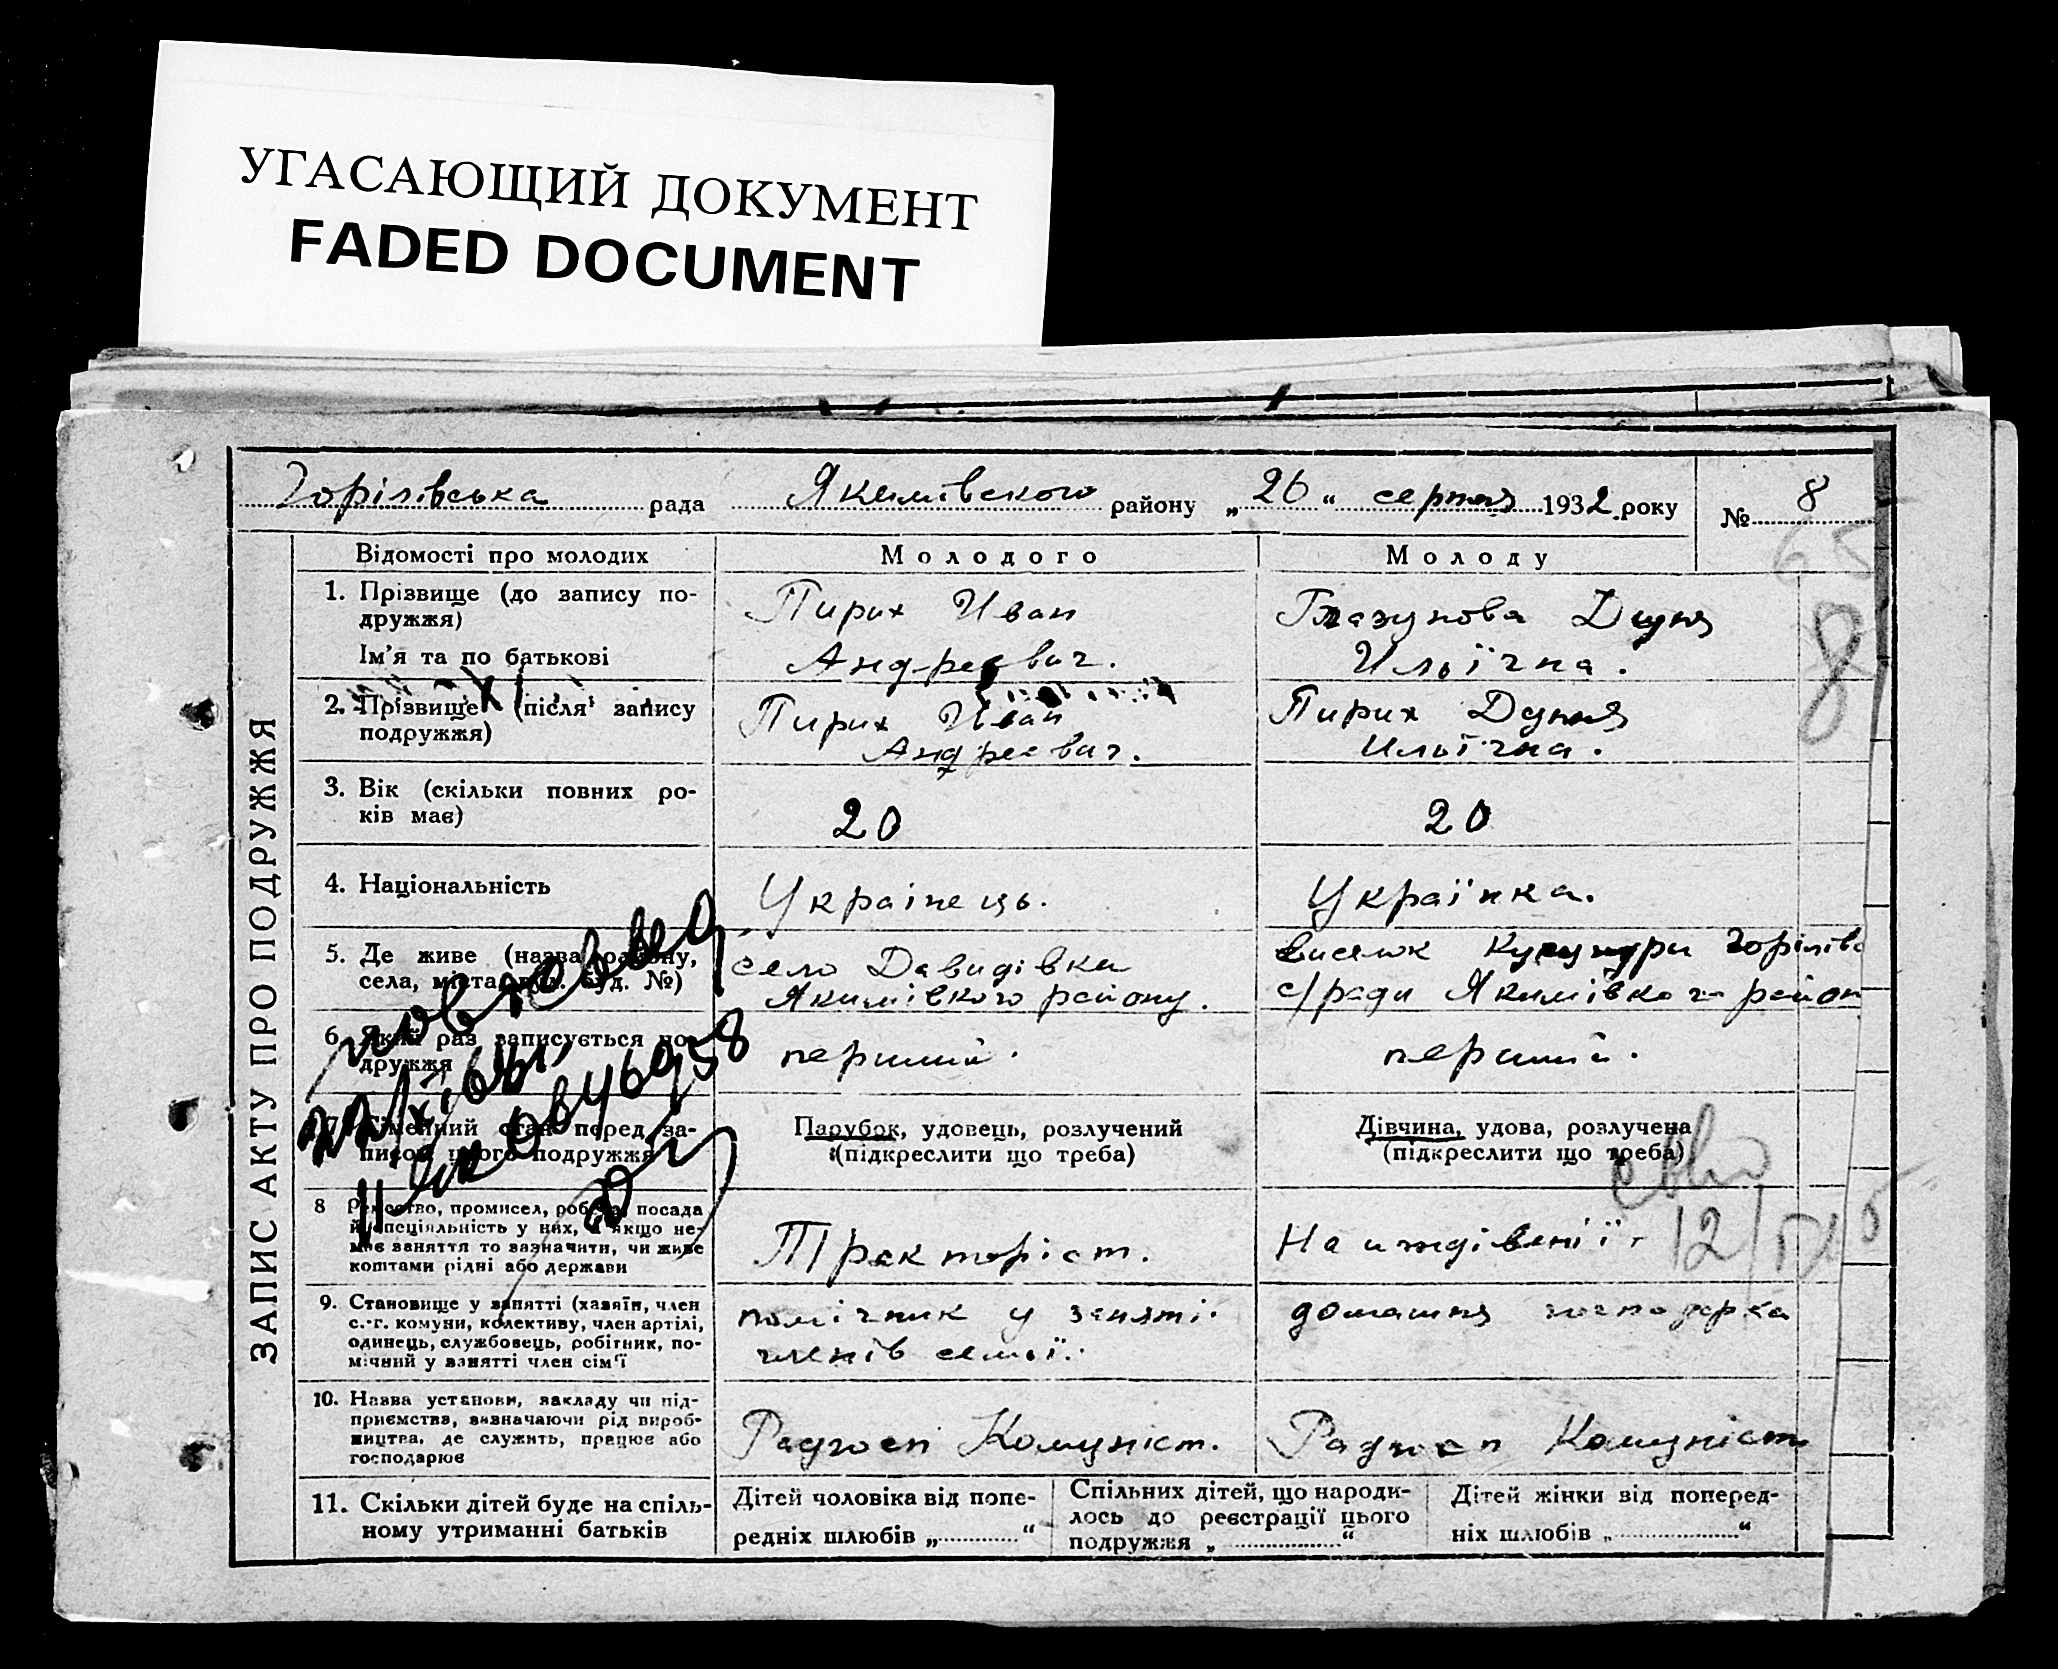 УГАСАЮЩИЙ ДОКУМЕНТ
FADED DOCUMENT
Горілівська рада Якимівського району „26“ серпня 1932 року № 8
65
8
ЗАПИС АКТУ ПРО ПОДРУЖЖЯ
Відомості про молодих
Молодого
Молоду
1. Прізвище (до запису по-
дружжя)
Ім'я та по батькові
Пирих Иван
Андреевич.
Глазунова Дуня
Ильїчна.
2. Прізвище (після запису
подружжя)
Пирих Иван
Андреевич.
Пирих Дуня
Ильїчна.
3. Вік (скільки повних ро-
ків має)
20
20
4. Національність
Українець.
Українка.
5. Де живе (назва району,
села, міста, вул. буд. №)
село Давидівка
Якимівкого району.
виселок Горілівс
с/ради Якимівкого район
6. Який раз записується по-
дружжя
перший.
перший.
7. Сімейний стан перед за-
писом цього подружжя
Парубок, удовець, розлучений
(підкреслити що треба)
Дівчина, удова, розлучена
(підкреслити що треба)
8 Ремество, промисел, робота, посада
й спеціяльність у них, а якщо не-
має заняття то зазначити, чи живе
коштами рідні або держави
Тракторіст.
На иждівенії.
12/
9. Становище у занятті (хазяїн, член
с.-г. комуни, колективу, член артілі,
одинець, службовець, робітник, по-
мічний у занятті член сім'ї
помічник у заняті
членів семьї.
домашня господарка
10. Назва установи, закладу чи під-
приємства, зазначаючи рід вироб-
ництва, де служить, працює або
господарює
Радгосп Комуніст.
Радгосп Комуніст
11. Скільки дітей буде на спіль-
ному утриманні батьків
Дітей чоловіка від попе-
редніх шлюбів „ “
Спільних дітей, що народи-
лось до реєстрації цього
подружжя „ “
Дітей жінки від поперед-
ніх шлюбів „ “